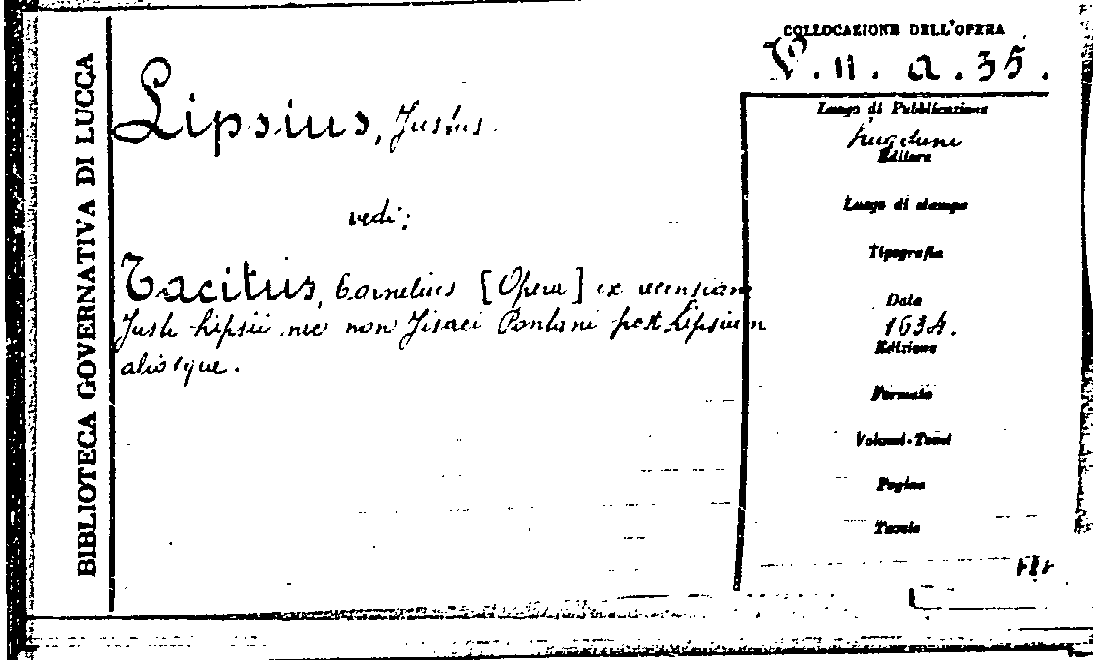 BIBLIOTECA GOVERNATIVA DI LUCCA
COLLOCAZIONE DELL'OPERA
P. II. a. 35.
Lipsius, Justus.
vedi:
Tacitus, Cornelius [Opera] ex recensione
Justi Lipsii nec non Jisaci Pontani post Lipsium
aliosque.
Luogo di Pubblicazione
Lugduni
Editore
Luogo di stampa
Tipografia
Data
1634.
Edizione
Formato
Volumi-Tomi
Pagine
Tavole